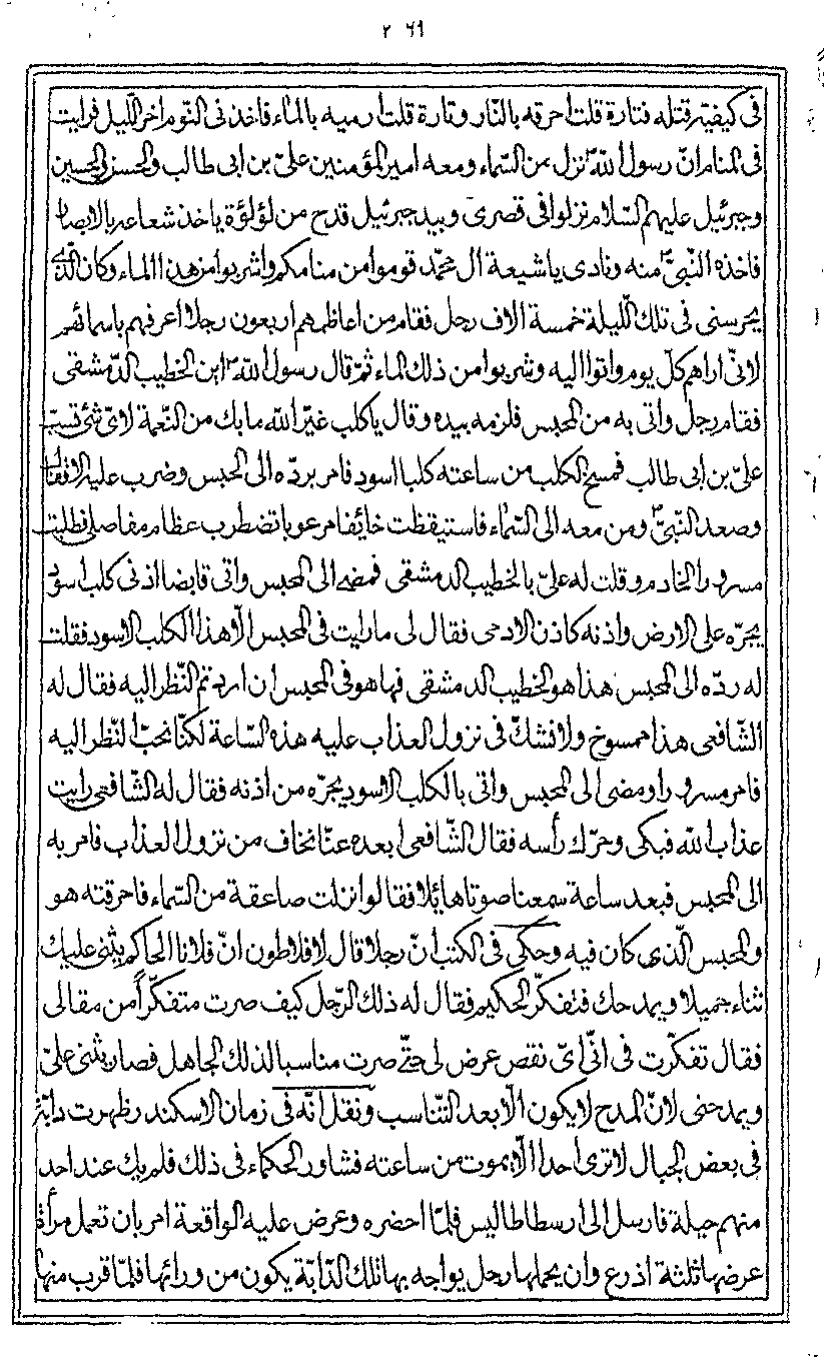 ٢٦٩
فى كيفيّة قتله فتارة قلت احرقه بالنّار وتارة قلت ارميه بالماء فاخذنى النّوم اخر اللّيل فرايت
فى المنام انّ رسول اللّه ص نزل من السّماء ومعه امير المؤمنين علىّ بن ابى طالب والحسن والحسين
وجبرئيل عليهم السّلام نزلوا فى قصرى وبيد جبرئيل قدح من لؤلؤة ياخذ شعاعه بالابصار
فاخذه النّبىّ ص منه ونادى يا شيعة ال محمّد قوموا من منامكم واشربوا من هذا الماء وكان الّذى
يحرسنى فى تلك اللّيلة خمسة الاف رجل فقام من اعاظمهم اربعون رجلا اعرفهم باسمائهم
لانّى اراهم كلّ يوم واتوا اليه وشربوا من ذلك الماء ثمّ قال رسول اللّه ص اين الخطيب الدّمشقى
فقام رجل واتى به من المحبس فلزمه بيده وقال يا كلب غيّر اللّه ما بك من النّعمة لاىّ شئ تسبّ
علىّ بن ابى طالب فمسخ الكلب من ساعته كلبا اسود فامر بردّه الى الحبس وضرب عليه الاقفال
وصعد النّبىّ ص ومن معه الى السّماء فاستيقظت خائفا مرعوبا تضطرب عظام مفاصلى فطلبت
مسرورا الخادم وقلت له علىّ بالخطيب الدمشقى فمضى الى المحبس واتى قابضا اذنى كلب اسود
يجرّه على الارض واذنه كاذن الادمى فقال لى ما رايت فى المحبس الّا هذا الكلب الاسود فقلت
له ردّه الى المحبس هذا هو الخطيب الدمشقى فها هو فى المحبس ان اردتم النّظر اليه فقال له
الشّافعى هذا ممسوخ ولا نشكّ فى نزول العذاب عليه هذه السّاعة لكنّا نحبّ النّظر اليه
فامر مسرورا ومضى الى المحبس واتى بالكلب الاسود يجرّه من اذنه فقال له الشّافعى رايت
عذاب اللّه فبكى وحرّك رأسه فقال الشّافعى ابعده عنّا نخاف من نزول العذاب فامر به
الى المحبس فبعد ساعة سمعنا صوتا هايلا فقالوا نزلت صاعقة من السّماء فاحرقته هو
والمحبس الّذى كان فيه وحكى فى الكتب انّ رجلا قال لافلاطون انّ فلانا الحاكم يثنى عليك
ثناء جميلا ويمدحك فتفكّر الحكيم فقال له ذلك الرّجل كيف صرت متفكّراً من مقالى
فقال تفكّرت فى انّى اىّ نقص عرض لى حتّى صرت مناسبا لذلك الجاهل فصار يثنى علىّ
ويمدحنى لانّ المدح لا يكون الّا بعد التّناسب ونقل انّه فى زمان الاسكندر ظهرت دابّة
فى بعض الجبال لا ترى احدا الّا يموت من ساعته فشاور الحكماء فى ذلك فلم يك عند احد
منهم حيلة فارسل الى ارسطاطاليس فلمّا احضره وعرض عليه الواقعة امر بان تعمل مرأة
عرضها ثلثة اذرع وان يحملها رجل يواجه بها تلك الدّابّة يكون من ورائها فلمّا قرب منها